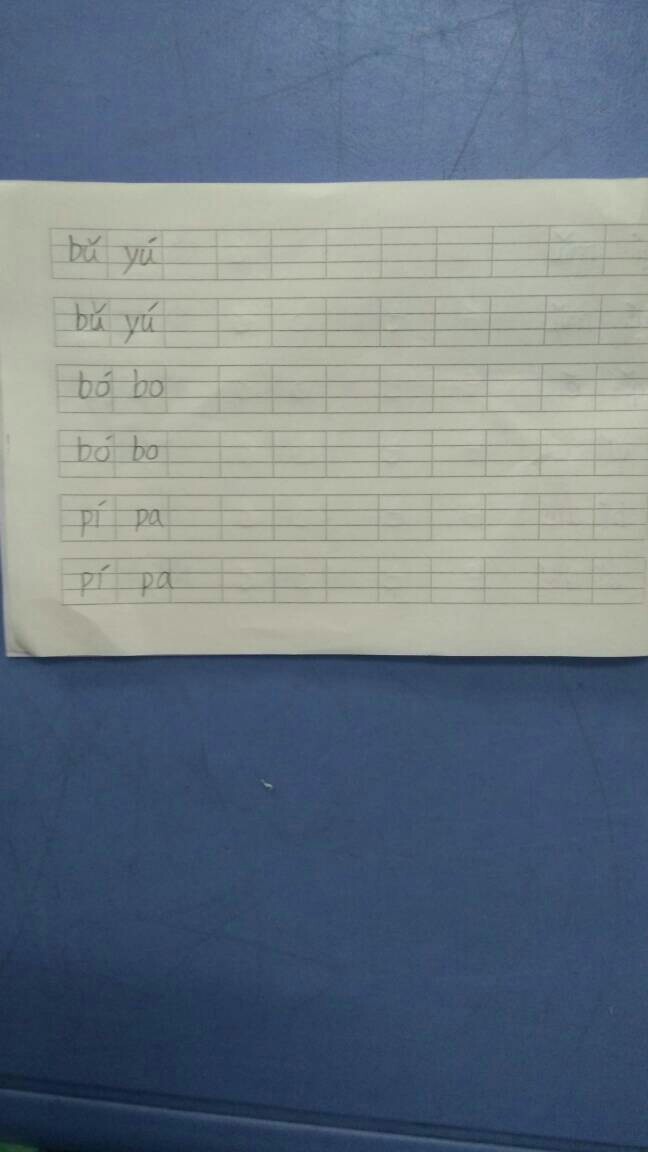 bǔ yú
bǔ yú
bó bo
bó bo
pí pa
pí pa